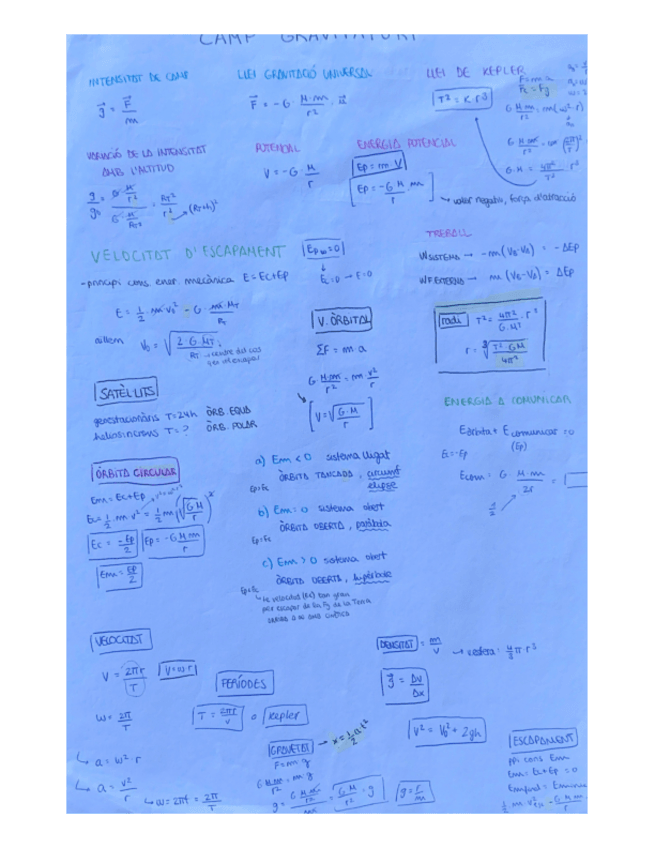 CAMP GRAVITATORI
INTENSITAT DE CAMP
g = F/m
LLEI GRAVITACIÓ UNIVERSAL
F = -G · M·m/r² · u
LLEI DE KEPLER
T² = K·r³
F = m·a
Fc = Fg
G M·m/r² = m(ω²·r)
G M·m/r² = m (2π/T)² r
G·M = 4π²/T² · r³
VARIACIÓ DE LA INTENSITAT
AMB L'ALTITUD
POTENCIAL
V = -G · M/r
ENERGIA POTENCIAL
Ep = m V
Ep = -G M·m/r
→ valor negatiu, força d'atracció
(RT+h)²
TREBALL
W SISTEMA → -m(VB-VA) = -ΔEp
WF EXTERNA → m(VB-VA) = ΔEp
VELOCITAT D'ESCAPAMENT
Ep∞=0
Ec=0 → E=0
-principi cons. ener. mecànica E=Ec+Ep
E = 1/2 m v0² - G · M·MT/RT
aïllem V0 = √2·G·MT/RT
V. ÒRBITAL
ΣF = m a
G M·m/r² = m v²/r
V = √G·M/r
radi T² = 4π²/G·MT · r³
r = ³√T²·G·M/4π²
SATÈL·LITS
geoestacionaris T=24h ÒRB. EQUA
heliosíncrons T=? ÒRB. POLAR
ENERGIA A COMUNICAR
Eòrbita + Ecomunicar = 0
(Ep)
Ec=-Ep
Ecom = G · M·m/2r =
ÒRBITA CIRCULAR
Em = Ec+Ep
Ec = 1/2 m v² = 1/2 m (√G M/r)²
Ec = -Ep/2 Ep = -G M m/r
Em = Ep/2
a) Em < 0 sistema lligat
Ep>Ec ÒRBITA TANCADA, circumf
elipse
b) Em = 0 sistema obert
ÒRBITA OBERTA, paràbola
Ep=Ec
c) Em > 0 sistema obert
ÒRBITA OBERTA, hipèrbola
Ep<Ec
↳ té velocitat (Ec) tan gran
per escapar de la Fg de la Terra
VELOCITAT
V = 2πr/T V=ω r
ω = 2π/T
↳ a = ω² r
↳ a = v²/r
↳ ω = 2πf = 2π/T
PERÍODES
T = 2πr/v o Kepler
DENSITAT = m/V → esfera: 4/3 π r³
g = ΔV/Δx
GRAVETAT → x = 1/2 a t²
F = m·g
G M·m/r² = m·g
v² = v0² + 2gh
g = F/m
ESCAPAMENT
ppi cons Em
Em = Ec+Ep = 0